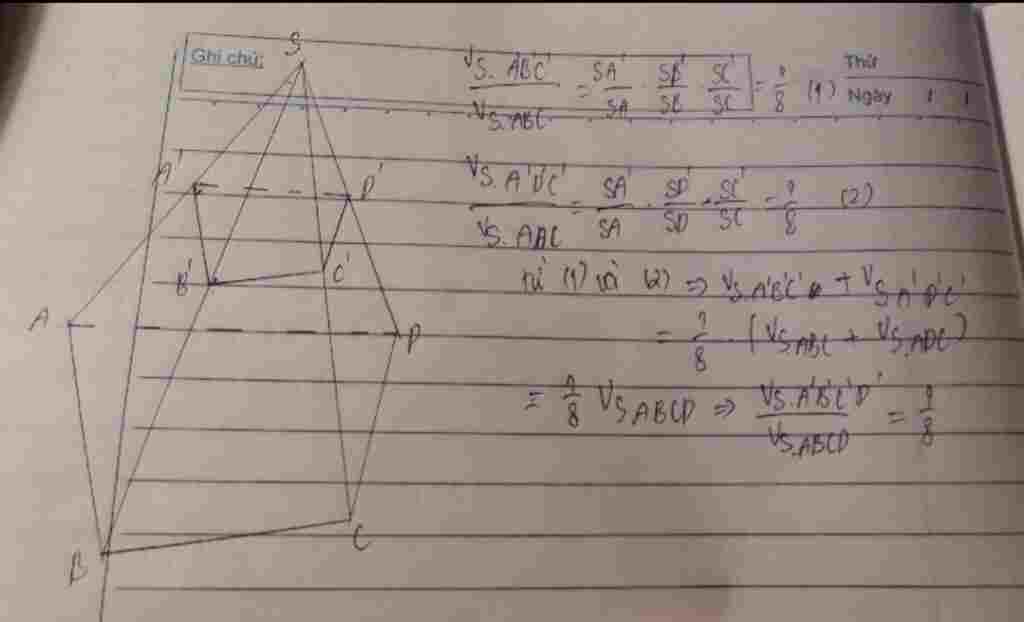 Ghi chú:
Thứ
Ngày
S
V S.A'B'C' / V S.ABC = SA'/SA . SB'/SB . SC'/SC = 1/8 (1)
A' D'
V S.A'D'C' / V S.ADC = SA'/SA . SD'/SD . SC'/SC = 1/8 (2)
B' C'
từ (1) và (2) => V S.A'B'C' + V S.A'D'C'
A D
= 1/8 . (V S.ABC + V S.ADC)
= 1/8 V S.ABCD => V S.A'B'C'D' / V S.ABCD = 1/8
C
B